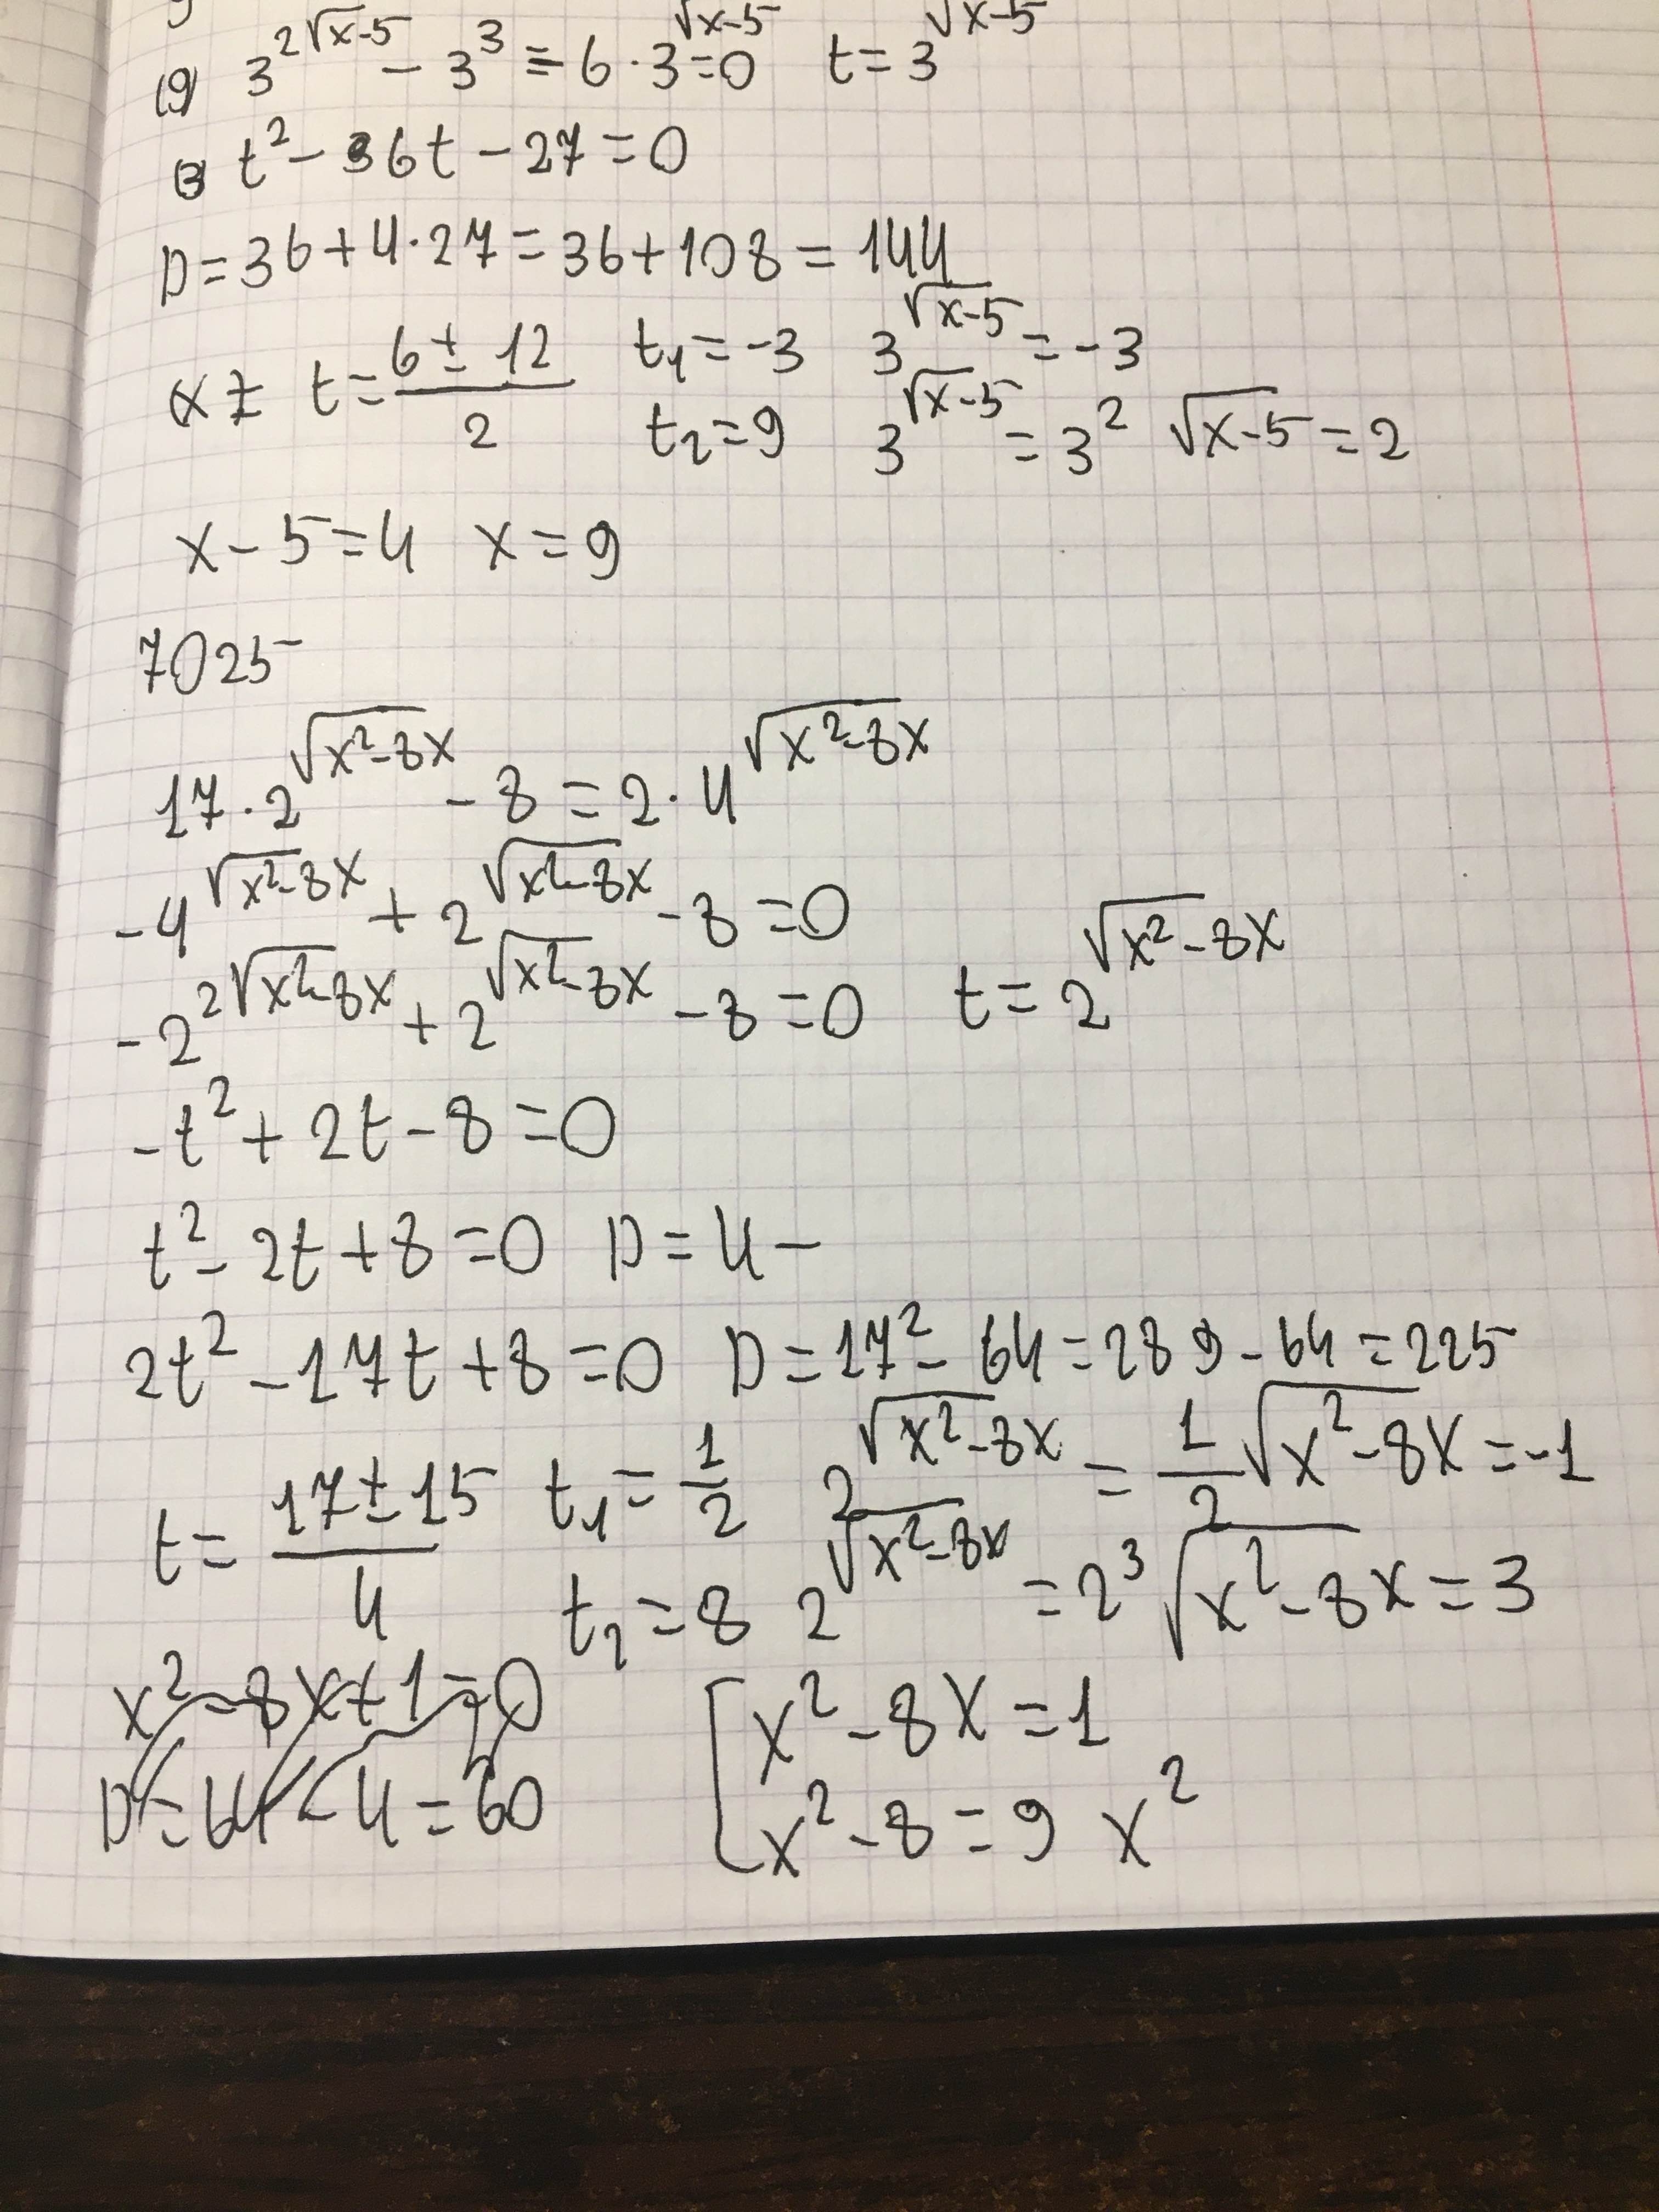 (9) 3^{2√(x-5)} - 3^3 = - 6 · 3^{√(x-5)} = 0 t = 3^{√(x-5)}
t² - 36t - 27 = 0
D = 36 + 4·27 = 36 + 108 = 144
x = t = (6 ± 12)/2 t₁ = -3 3^{√(x-5)} = -3
t₂ = 9 3^{√(x-5)} = 3² √(x-5) = 2
x - 5 = 4 x = 9
7025
17 · 2^{√(x²-8x)} - 8 = 2 · 4^{√(x²-8x)}
-4^{√(x²-8x)} + 2^{√(x²-8x)} - 8 = 0
-2^{2√(x²-8x)} + 2^{√(x²-8x)} - 8 = 0 t = 2^{√(x²-8x)}
-t² + 2t - 8 = 0
t² - 2t + 8 = 0 D = 4 -
2t² - 17t + 8 = 0 D = 17² - 64 = 289 - 64 = 225
t = (17 ± 15)/4 t₁ = 1/2 2^{√(x²-8x)} = 1/2 √(x²-8x) = -1
t₂ = 8 2^{√(x²-8x)} = 2³ √(x²-8x) = 3
x² - 8x + 1 = 0 [ x² - 8x = 1
D = 64 - 4 = 60 x² - 8 = 9 x²